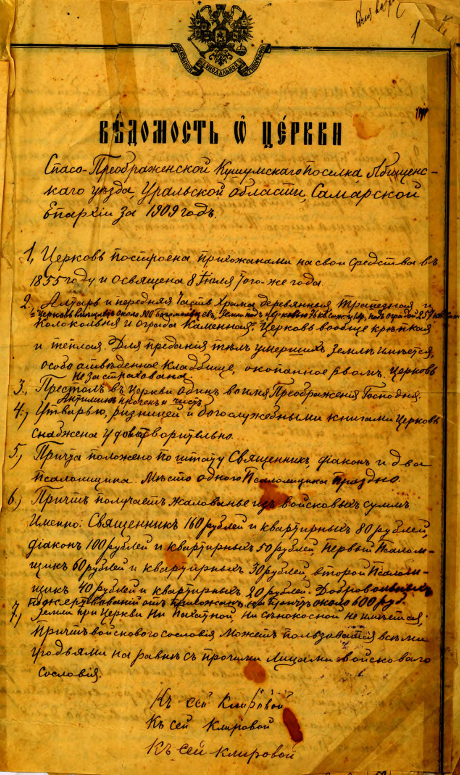 1
ВѢДОМОСТЬ Ѡ ЦЕ́РКВИ
Спасо-Преображенской Кушумскаго поселка Лбищен-
скаго уѣзда, Уральской области, Самарской
Епархіи за 1909 годъ.
1, Церковь построена прихожанами на свои средства въ
1855 году и освящена 8 Іюля того-же года
2, Алтарь и передняя часть храма деревянная, трапезная и
колокольня и ограда каменная. Церковь вообще крѣпкая
и теплая. Для преданія тѣлъ умершихъ землѣ имѣется
особо отведенное кладбище, окопанное рвомъ. Церковь
не застрахована.
3, Престолъ въ Церкви одинъ, во имя Преображенія Господня
Антиминсъ и чистъ
4, Утварью, ризницей и богослужебными книгами Церковь
снабжена удовлетворительно.
5, Причта положено по штату Священникъ, діаконъ и два
псаломщика. Мѣсто одного Псаломщика праздно.
6, Причтъ получаетъ жалованье изъ войсковыхъ суммъ
Именно: Священникъ 160 рублей и квартирныхъ 80 рублей,
діаконъ 100 рублей и квартирныхъ 50 рублей, первый Псалом-
щикъ 60 рублей и квартирныхъ 30 рублей, второй Псалом-
щикъ 40 рублей и квартирныхъ 20 рублей. Добровольныхъ
пожертвованій отъ прихожанъ около 600 руб.
7, Земли при Церкви ни пахатной, ни сѣнокосной не имѣется,
Причтъ войскового сословія можетъ пользоваться всѣми
угодьями на равнѣ съ прочими лицами войсковаго
сословія.
Къ сей Клировой
Къ сей Клировой
Къ сей клировой